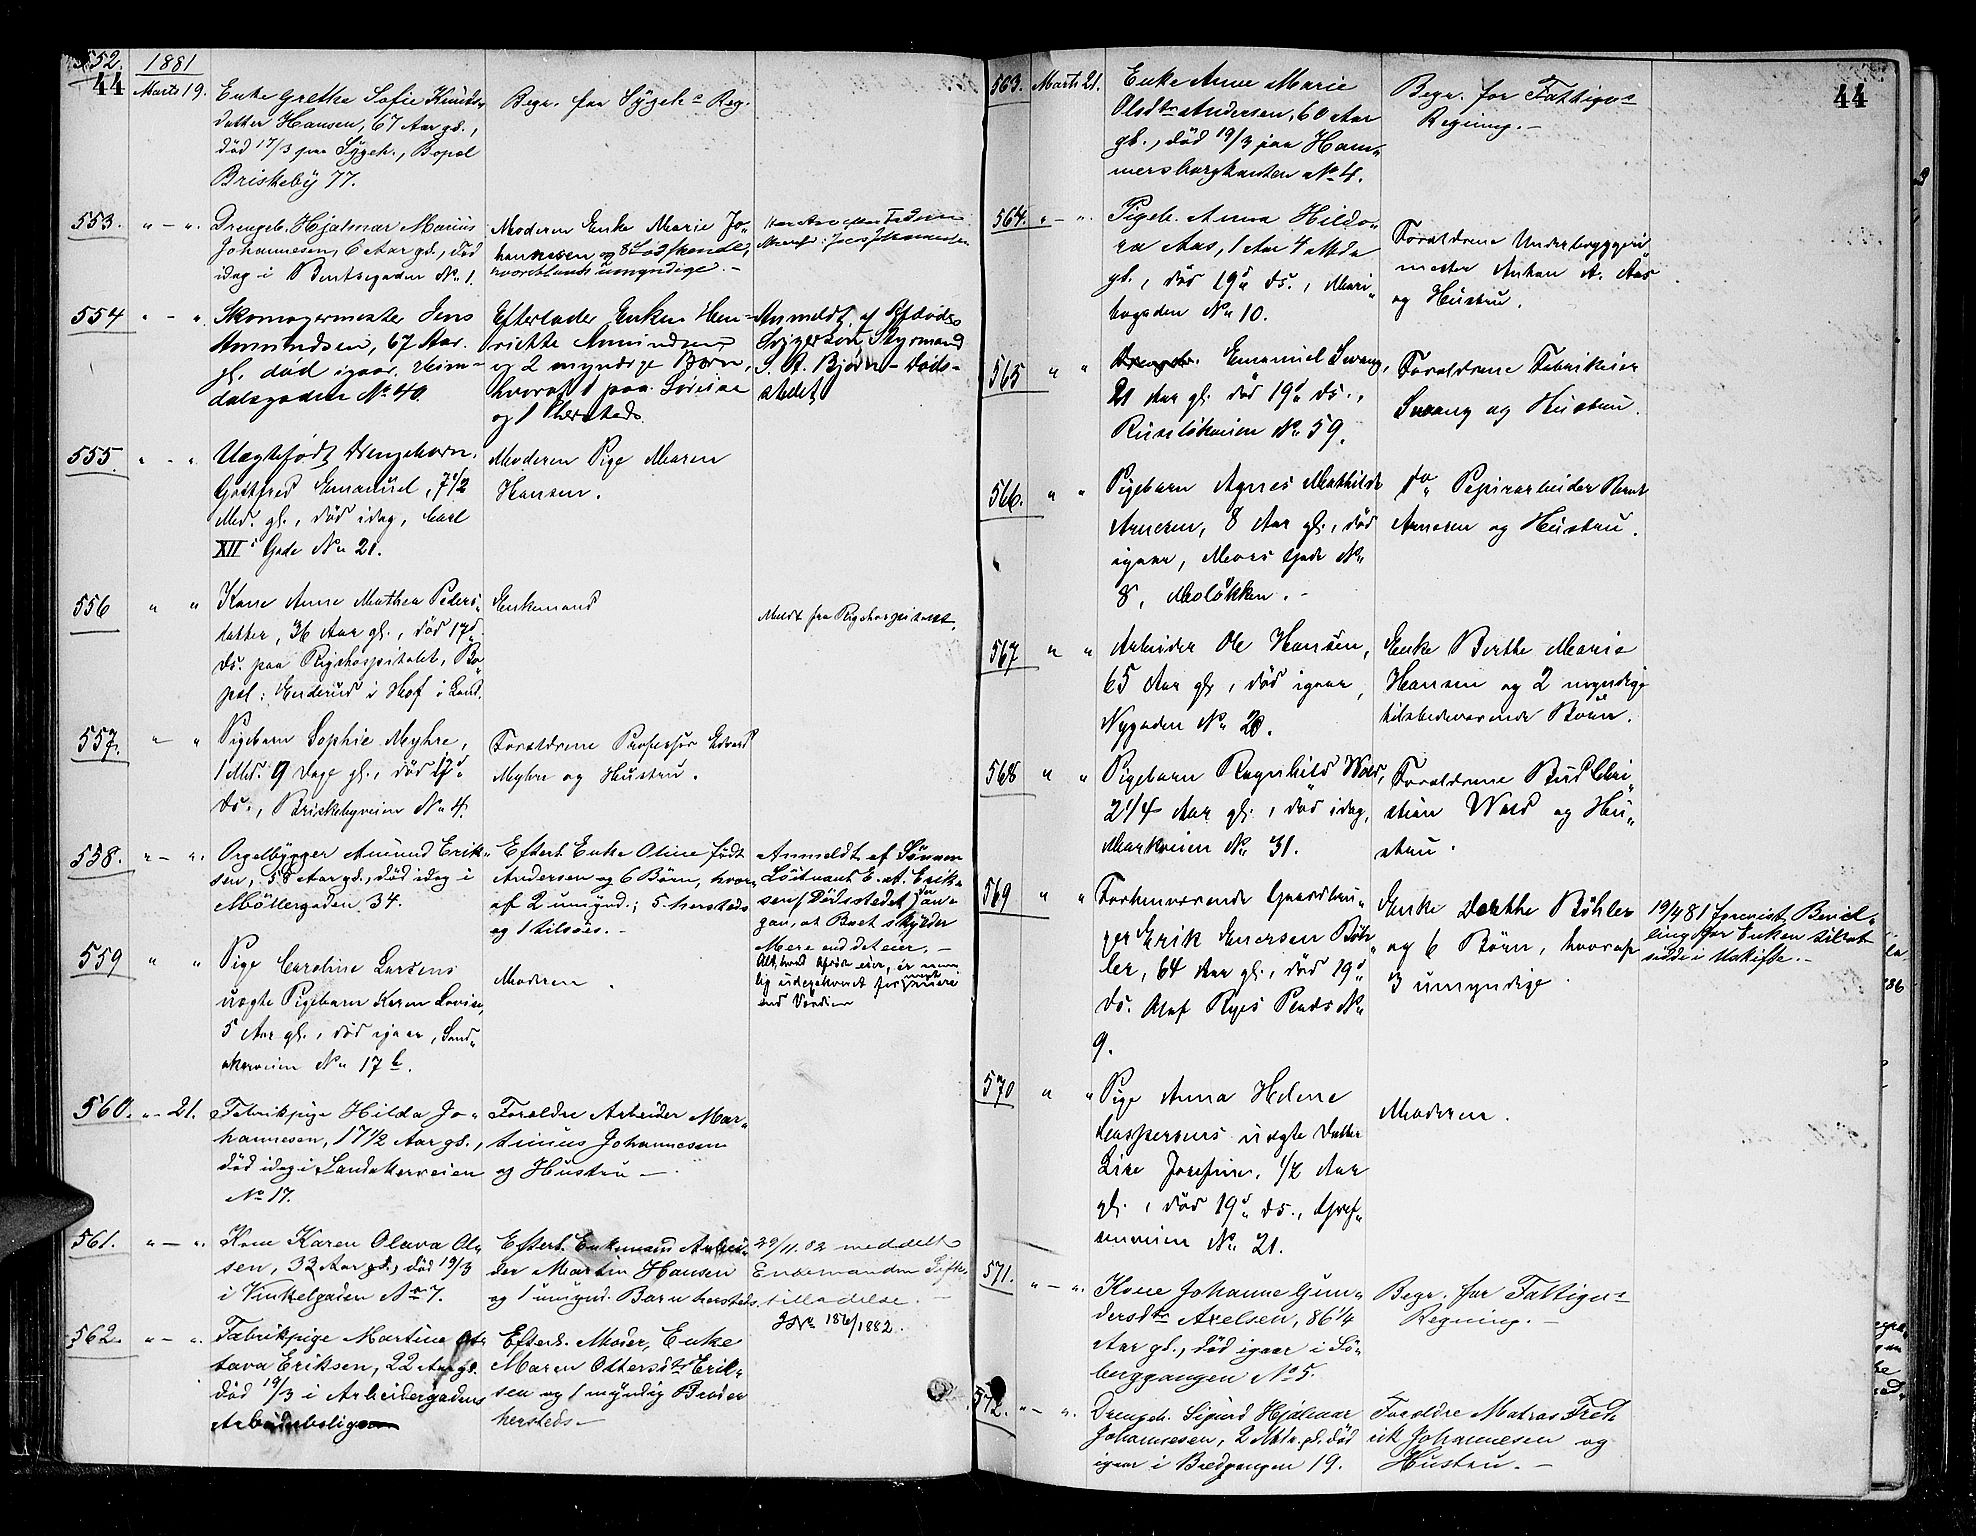 552.
44
1881
Marts 19.
Enke Grethe Sofie Knuds-
datter Hansen, 67 Aar gl.,
død 17/3 paa Sygeh., Bopæl
Briskeby 77.
Begr. for Sygeh.s Reg.
553. " - ".
Drengeb. Hjalmar Marius
Johannesen, 6 Aar gl., død
idag i Bentsegaden No 1.
Moderen Enke Marie Jo-
hannesen og 8 Lødskende,
hvoriblandt 2 umyndige. -
554 " - ".
Skomagermester Jens
Amundsen, 67 Aar.
gl. død igaar. Heim-
dalsgaden No 40.
Efterlader Enken Hen-
riette Amundsen
og 2 myndige Børn,
hvoraf 1 paa Søreise
og 1 hersteds.
Anmeldt af Afdødes
Svigersøn, Styrmand
S. A. Bjørn - Døds-
stedet
555. " - ".
Uægtefødt Drengebarn
Gottfred Emanuel, 7 1/2
Md. gl., død idag, Carl
XII's Gade No 21.
Moderen Pige Maren
Hansen.
556 " "
Kone Anne Mathea Peders-
datter, 36 Aar gl., død 17d
ds. paa Rigshospitalet, Bo-
pæl: Enderud i Hof i Land.
Enkemand
Meldt fra Rigshospitalet.
557. " - "
Pigebarn Sophie Myhre,
1 Md. 9 Dage gl., død 17d
ds., Briskebyveien No 4.
Forældrene Professor Edvard
Myhre og Hustru.
558. " - ".
Orgelbygger Amund Erik-
sen, 58 Aar gl., død idag i
Møllergaden 34.
Efterl. Enke Oline født
Andersen og 6 Børn, hvor-
af 2 umynd.; 5 hersteds
og 1 tilsøes. -
Anmeldt af Sønnen
Løitnant E. A. Erik-
sen / Dødsstedet / der an-
gav, at Boet skylder
Mere end det eier. -
559 " "
Pige Caroline Larsens
uægte Pigebarn Karen Lovise,
5 Aar gl., død igaar, Sand-
akerveien No 17 b.
Moderen.
560. " - 21.
Fabrikpige Hilda Jo-
hannesen, 17 1/2 Aar gl.,
død idag i Sandakerveien
No 17.
Forældre Arbeider Mar-
tinius Johannesen
og Hustru -
561. " - ".
Kone Karen Olava Ol-
sen, 32 Aar gl., død 19/3
i Vinkelgaden No 7.
Efterl. Enkemand Arbei-
der Martin Hansen
og 1 umynd. Barn hersteds.
29/11.02 meddelt
Enkemanden Gifte-
tilladelse. -
562. " - ".
Fabrikpige Martine Ot-
tava Eriksen, 22 Aar gl.
død 19/3 i Arbeidergadens
Arbeiderboliger
Efterl. Moder, Enke
Maren Ottersdtr Erik-
sen og 1 myndig Broder
hersteds. -
44
563. Marts 21.
Enke Anne Marie
Olsdtr Andersen, 60 Aar
gl., død 19/3 paa Ham-
mersborgkanten No 4.
Begr. for Fattigv.s
Regning. -
564. " - ".
Pigeb. Anna Hildo-
ra Aas, 1 Aar 4 Mdr
gl., død 19d ds., Mari-
bogaden No 10.
Forældrene Underbryggeri
mester Anton A. Aas
og Hustru.
565 " "
Emanuel Swang,
21 Aar gl. død 19d ds.,
Ruseløkveien No 59.
Forældrene Fabrikeier
Swang og Hustru.
566. " "
Pigebarn Agnes Mathilde
Arnesen, 8 Aar gl., død
igaar, Moers Gade No
8, Meløkken. -
do Papirarbeider Bernt
Arnesen og Hustru.
567 " "
Arbeider Ole Hansen,
65 Aar gl., død igaar,
Nygaden No 20.
Enke Berthe Marie
Hansen og 2 myndige
tilstedeværende Børn.
568 " "
Pigebarn Ragnhild Wold,
2 1/4 Aar gl., død idag,
Markveien No 31.
Forældrene Bud Chri-
stian Wold og Hu-
stru.
569 " "
Forhenværende Gaardbru-
ger Erik Enersen Bøh-
ler, 64 Aar gl., død 19d
ds. Olaf Ryes Plads No
9.
Enke Dorthe Bøhler
og 6 Børn, hvoraf
3 umyndige.
19/4 81 forevist Bevil-
ling for Enken til at
sidde i Uskifte. -
570 " "
Pige Anna Helene
Kaspersens uægte Datter
Lise Josefine, 1/2 Aar
gl., død 19d ds., Gref-
senveien No 21.
Moderen.
571. " - ".
Kone Johanne Gun-
dersdtr Axelsen, 86 1/4
Aar gl., død igaar i Sø-
berggangen No 5.
Begr. for Fattigv.s
Regning. -
572. " - ".
Drengeb. Sigurd Hjalmar
Johannesen, 2 Mdr. gl. død
igaar i Bredgangen 19.
Forældre Matros Fred-
rik Johannesen og
Hustru. -